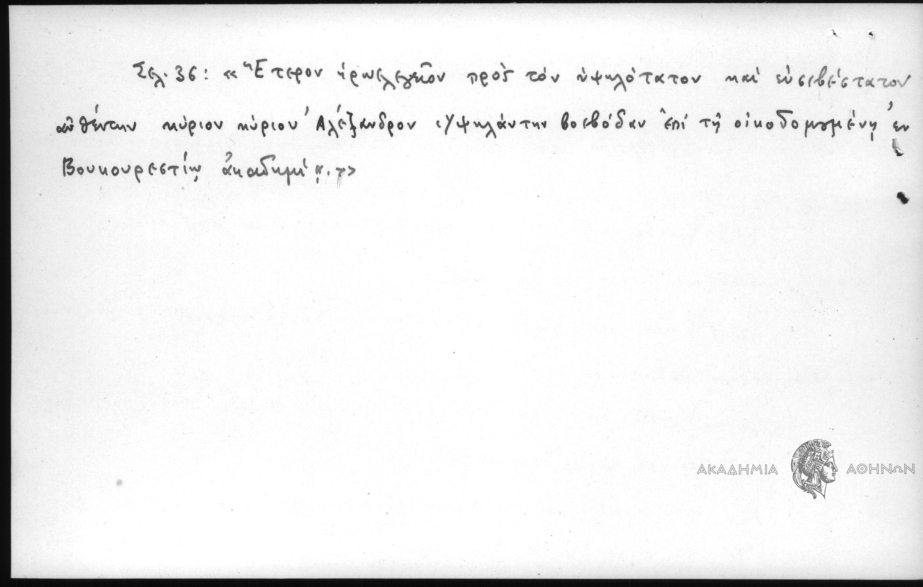 Σελ. 36: «Ἕτερον ἡρωελεγεῖον πρὸς τὸν ὑψηλότατον καὶ εὐσεβέστατον
αὐθέντην κύριον κύριον Ἀλέξανδρον Ὑψηλάντην βοεβόδαν ἐπὶ τῇ οἰκοδομουμένῃ ἐν
Βουκουρεστίῳ ἀκαδημίᾳ.»
ΑΚΑΔΗΜΙΑ ΑΘΗΝΩΝ